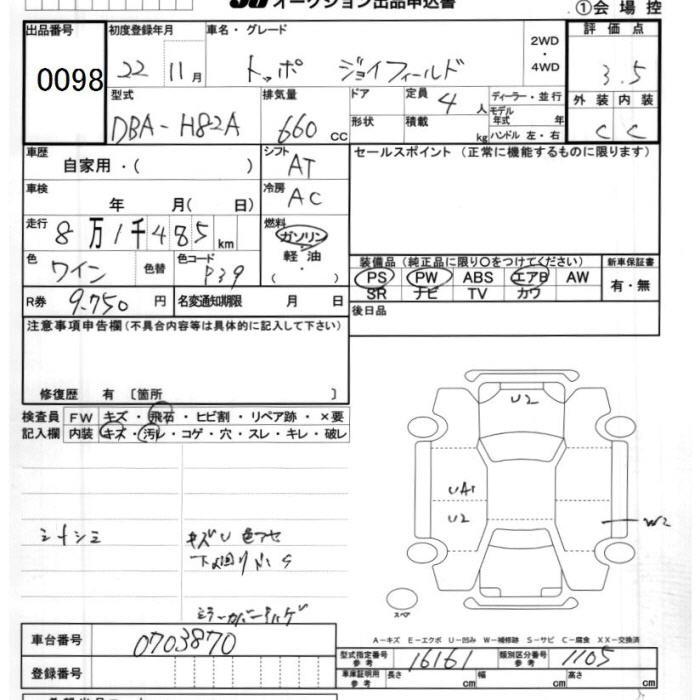 オークション出品申込書
①会場控
出品番号 初度登録年月 車名・グレード 2WD・4WD 評価点
0098 22 11月 トッポ ジョイフィールド 3.5
型式 排気量 ドア 定員 4人 ディーラー・並行 外装 内装
DBA-H82A 660cc 形状 積載 kg モデル年式 年 ハンドル 左・右 C C
車歴 自家用・( ) シフト AT セールスポイント (正常に機能するものに限ります)
車検 年 月( 日) 冷房 AC
走行 8万1千485km 燃料 ガソリン・軽油・( )
色 ワイン 色替 色コード P39
装備品 (純正品に限り○をつけてください) 新車保証書
PS PW ABS エアB AW 有・無
SR ナビ TV カワ
R券 9,750円 名変通知期限 月 日 後日品
注意事項申告欄 (不具合内容等は具体的に記入して下さい)
修復歴 有 〔箇所 〕
検査員 FW キズ・飛石・ヒビ割・リペア跡・×要
記入欄 内装 キズ・汚レ・コゲ・穴・スレ・キレ・破レ
U2
UA1
U2
W2
シートシミ キズU 色アセ
下廻り小S
ミラーカバーハゲ
スペア
A-キズ E-エクボ U-凹み W-補修跡 S-サビ C-腐食 XX-交換済
車台番号 0703870
型式指定番号 参考 16161 類別区分番号 参考 1105
登録番号 車庫証明用 参考 長さ cm 幅 cm 高さ cm